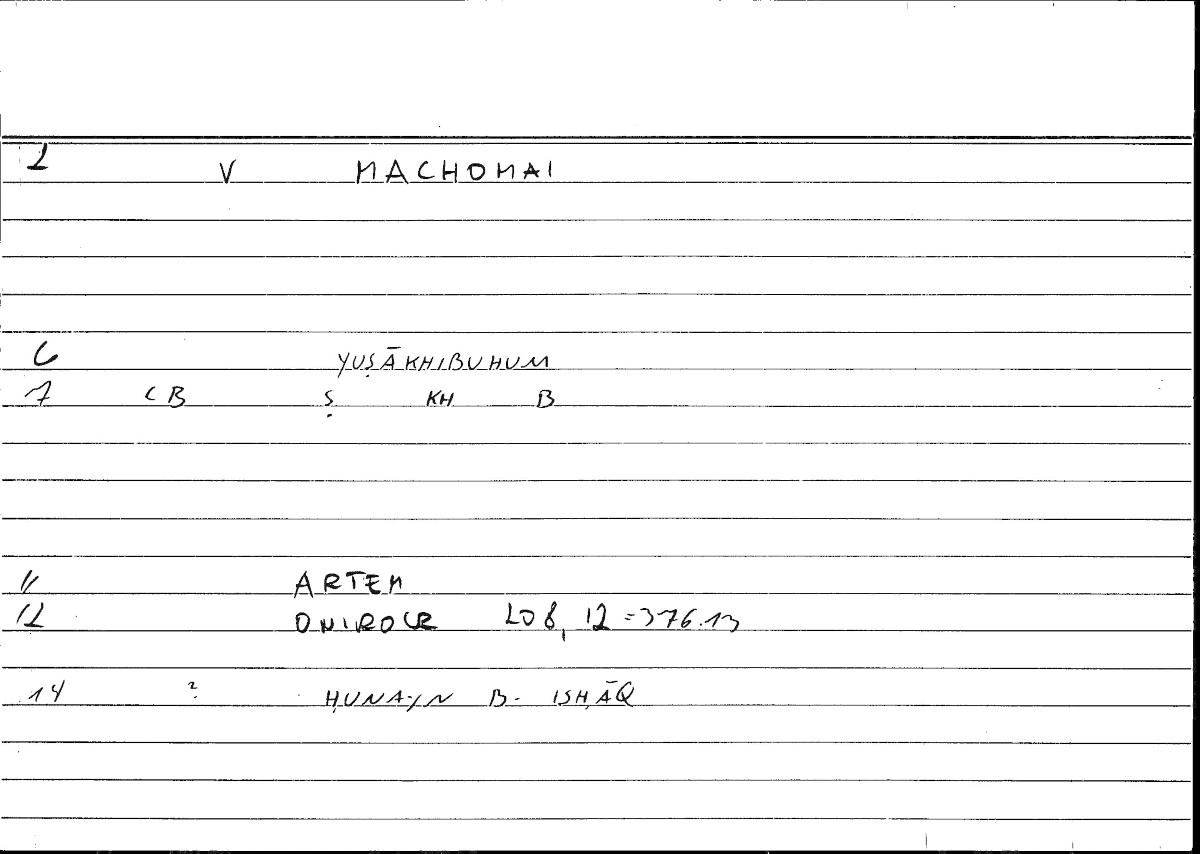 1 V MACHOMAI
6 YUṢĀKHIBUHUM
7 CB Ṣ KH B
11 ARTEM
12 ONIROCR 208, 12 = 376.13
14 ? ḤUNAYN B. ISḤĀQ